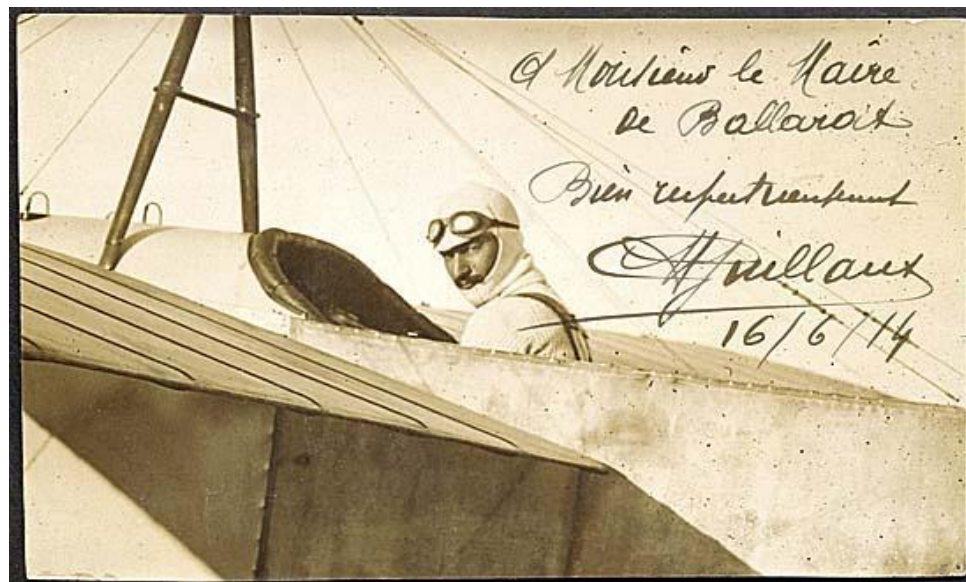 A Monsieur le Maire
de Ballarat
Bien respectueusement
Guillaux
16/6/14